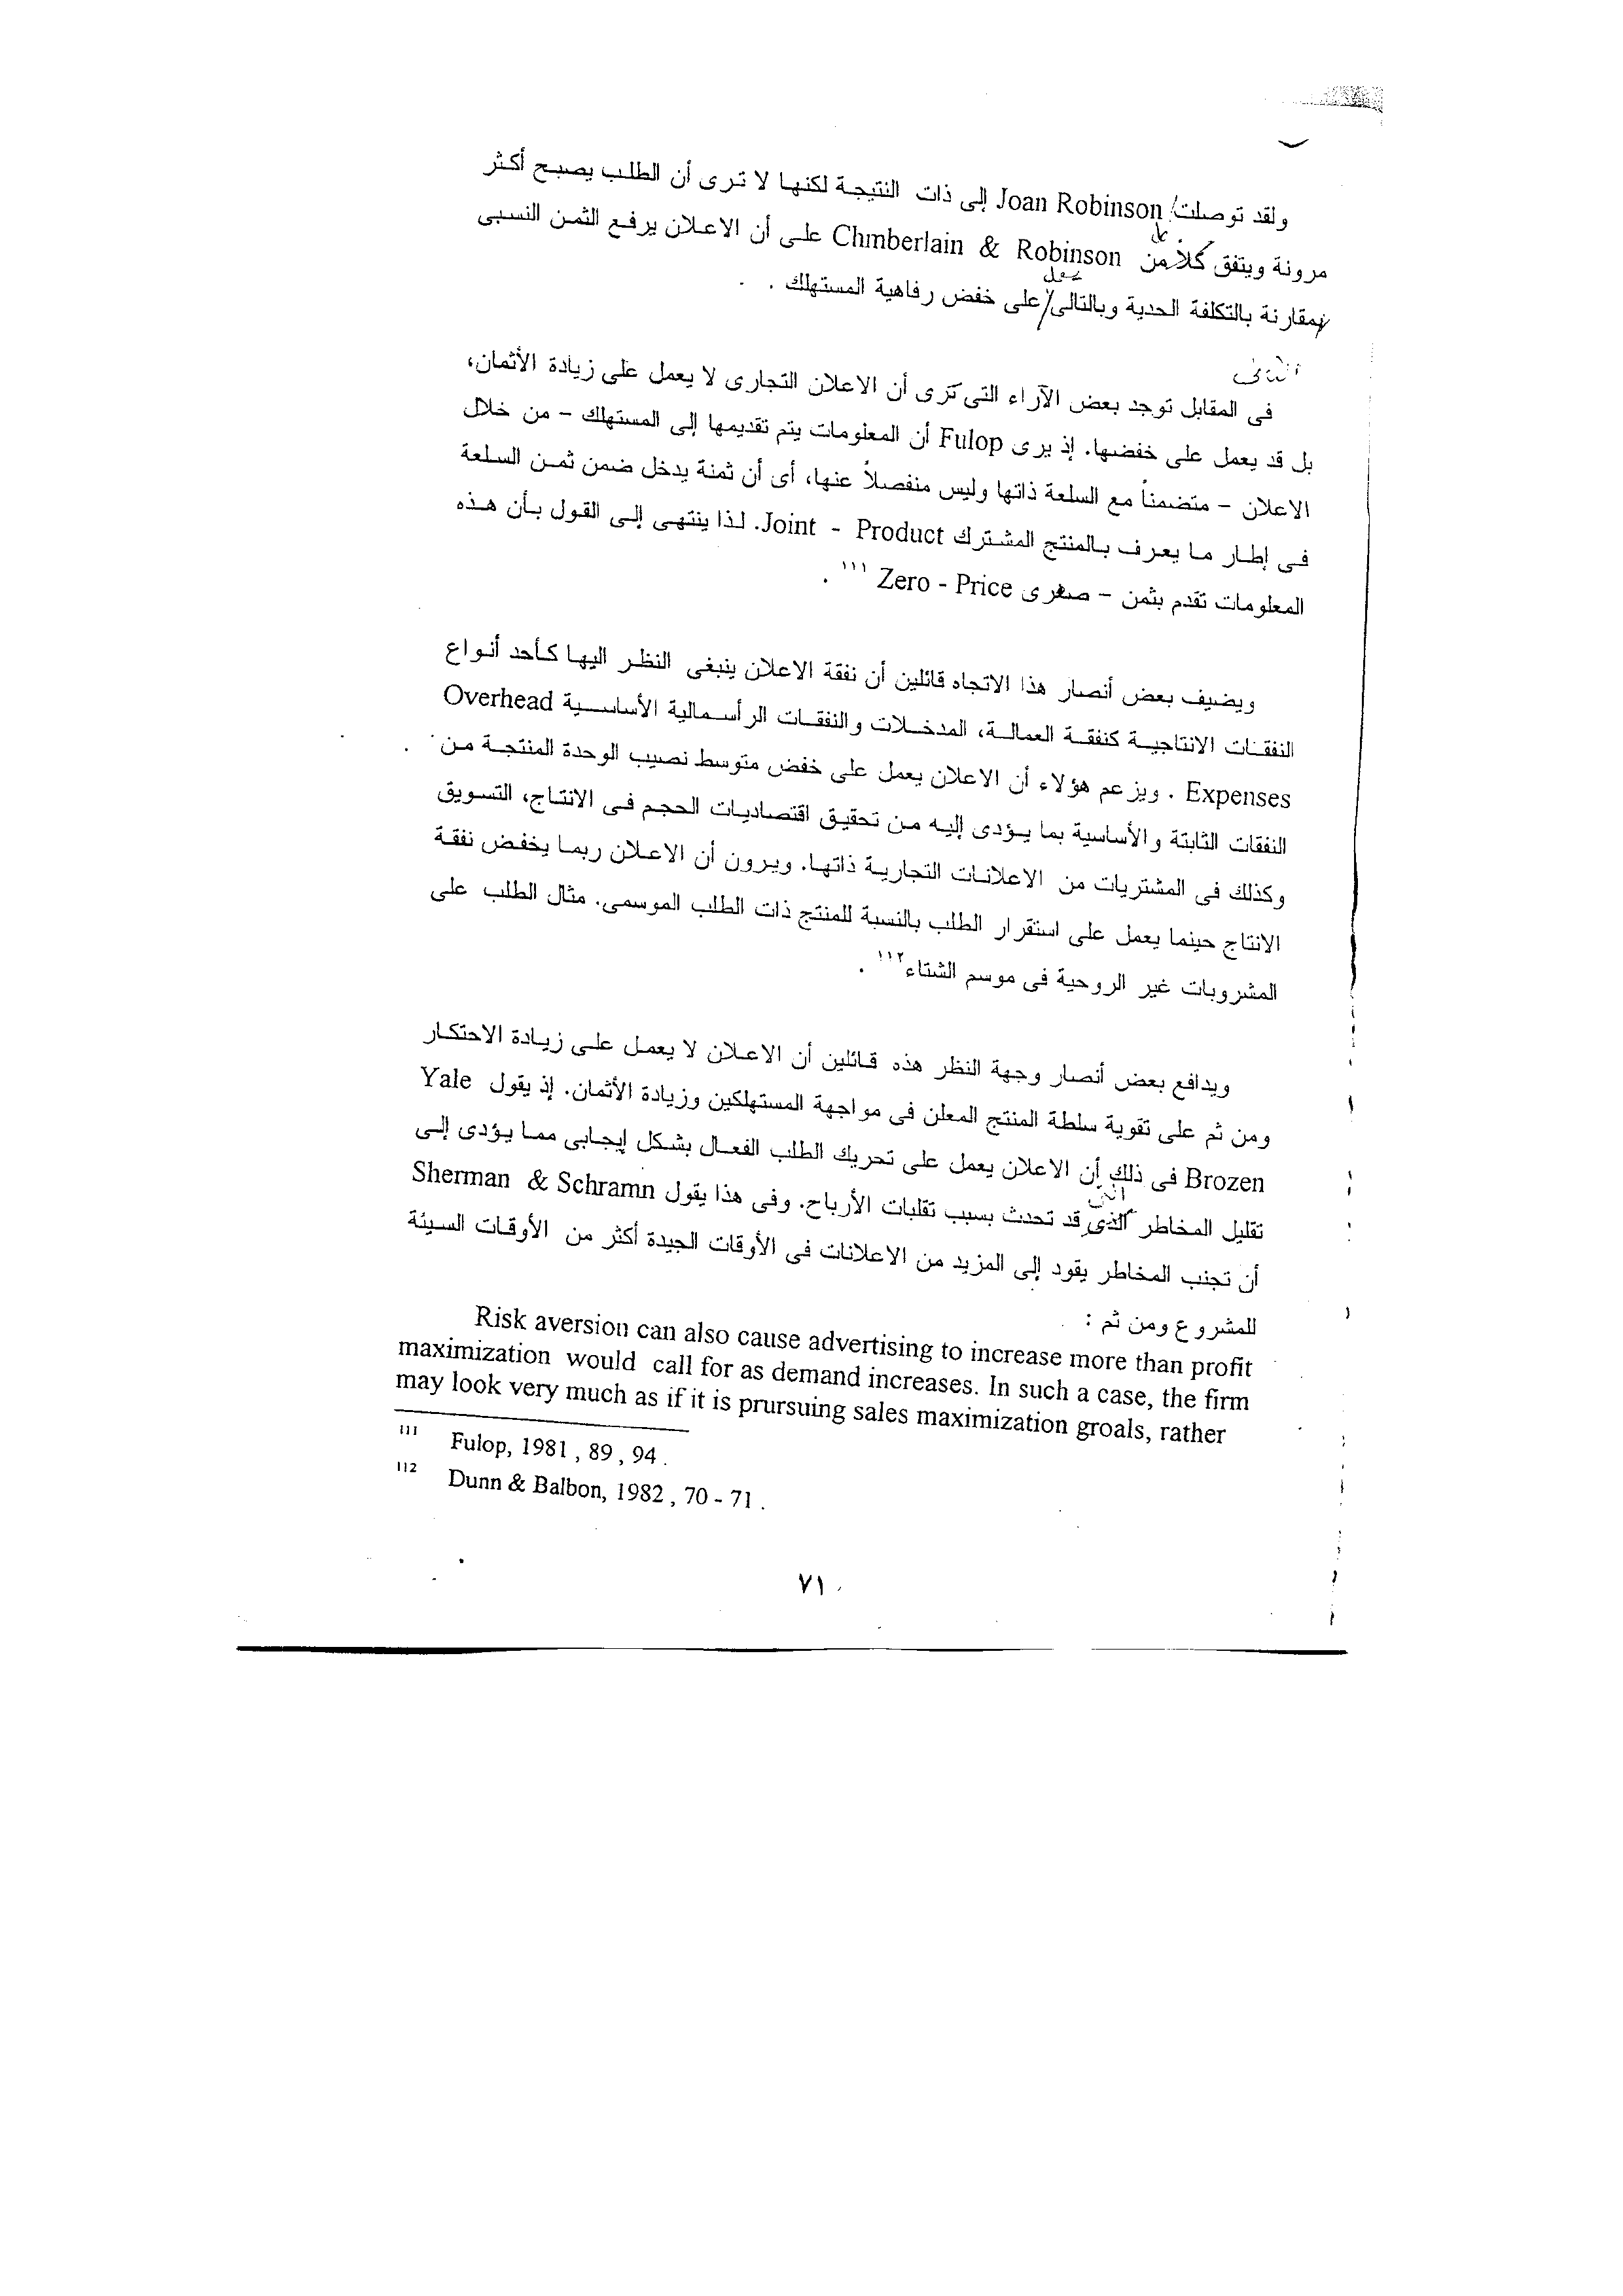 ولقد توصلت Joan Robinson إلى ذات النتيجة لكنها لا ترى أن الطلب يصبح أكثر
مرونة ويتفق كلاً من Chmberlain & Robinson على أن الاعلان يرفع الثمن النسبى
بمقارنة بالتكلفة الحدية وبالتالى يعمل على خفض رفاهية المستهلك .
فى المقابل توجد بعض الآراء التى ترى أن الاعلان التجارى لا يعمل على زيادة الأثمان،
بل قد يعمل على خفضها. إذ يرى Fulop أن المعلومات يتم تقديمها إلى المستهلك – من خلال
الاعلان – متضمناً مع السلعة ذاتها وليس منفصلاً عنها، أى أن ثمنة يدخل ضمن ثمن السلعة
فى إطار ما يعرف بالمنتج المشترك Joint - Product. لذا ينتهى إلى القول بأن هذه
المعلومات تقدم بثمن – صفرى Zero - Price ١١١ .
ويضيف بعض أنصار هذا الاتجاه قائلين أن نفقة الاعلان ينبغى النظر اليها كأحد أنواع
النفقات الانتاجية كنفقة العمالة، المدخلات والنفقات الرأسمالية الأساسية Overhead
Expenses . ويزعم هؤلاء أن الاعلان يعمل على خفض متوسط نصيب الوحدة المنتجة من
النفقات الثابتة والأساسية بما يؤدى إليه من تحقيق اقتصاديات الحجم فى الانتاج، التسويق
وكذلك فى المشتريات من الاعلانات التجارية ذاتها. ويرون أن الاعلان ربما يخفض نفقة
الانتاج حينما يعمل على استقرار الطلب بالنسبة للمنتج ذات الطلب الموسمى. مثال الطلب على
المشروبات غير الروحية فى موسم الشتاء١١٢ .
ويدافع بعض أنصار وجهة النظر هذه قائلين أن الاعلان لا يعمل على زيادة الاحتكار
ومن ثم على تقوية سلطة المنتج المعلن فى مواجهة المستهلكين وزيادة الأثمان. إذ يقول Yale
Brozen فى ذلك أن الاعلان يعمل على تحريك الطلب الفعال بشكل إيجابى مما يؤدى إلى
التى
تقليل المخاطر الذى قد تحدث بسبب تقلبات الأرباح. وفى هذا يقول Sherman & Schramn
أن تجنب المخاطر يقود إلى المزيد من الاعلانات فى الأوقات الجيدة أكثر من الأوقات السيئة
للمشروع ومن ثم :
Risk aversion can also cause advertising to increase more than profit
maximization would call for as demand increases. In such a case, the firm
may look very much as if it is prursuing sales maximization groals, rather
111 Fulop, 1981 , 89 , 94 .
112 Dunn & Balbon, 1982 , 70 - 71 .
٧١